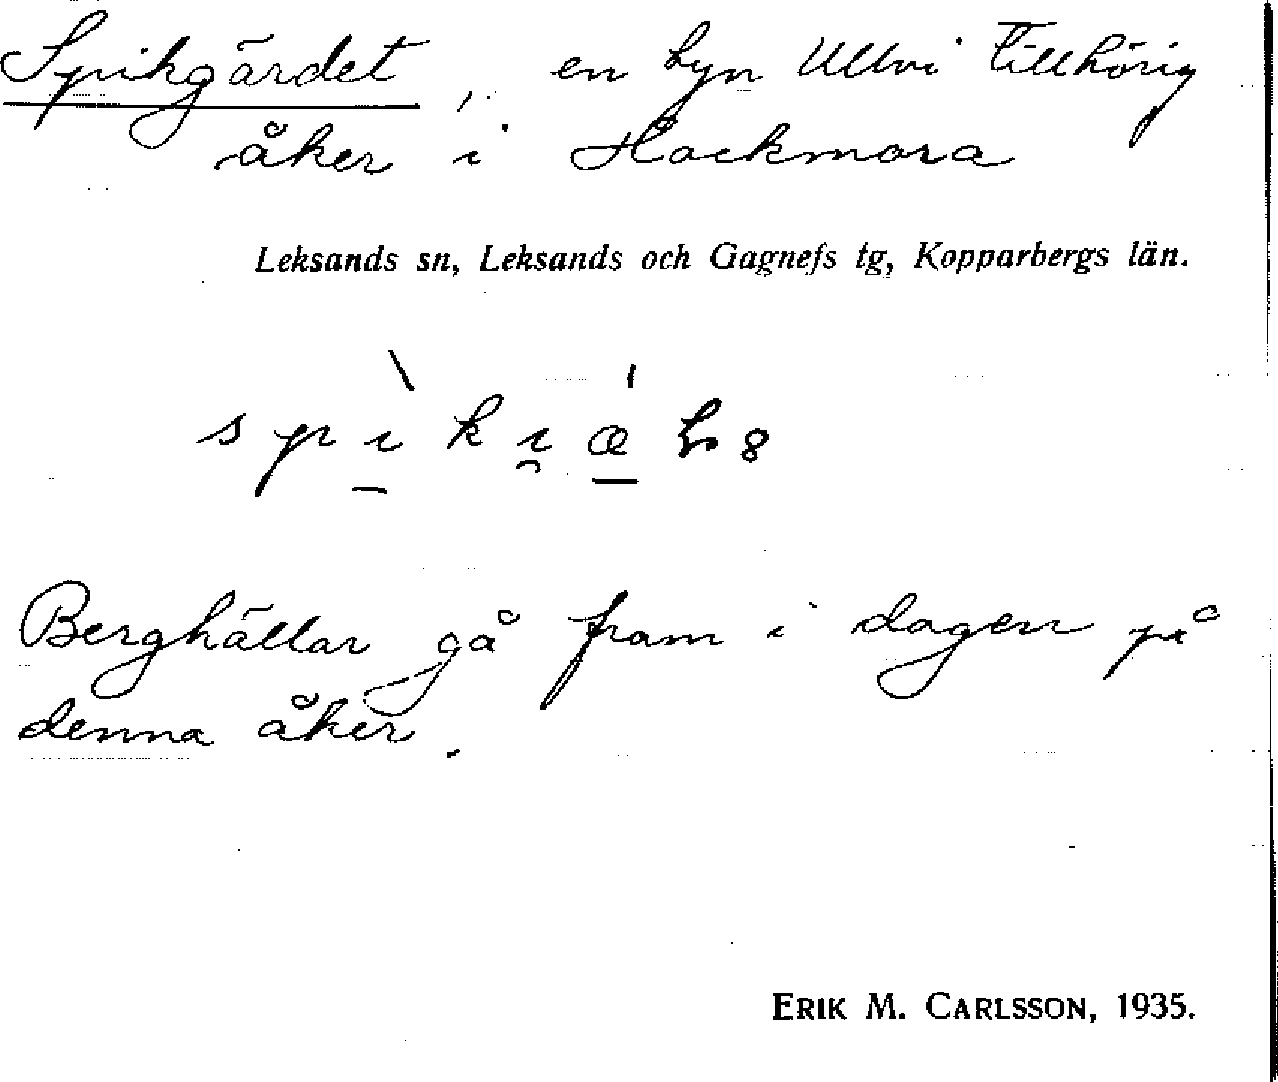 Spikgärdet, en byn Ullvi tillhörig
åker i Hackmora
Leksands sn, Leksands och Gagnefs tg, Kopparbergs län.
Berghällar gå fram i dagen på
denna åker.
ERIK M. CARLSSON, 1935.